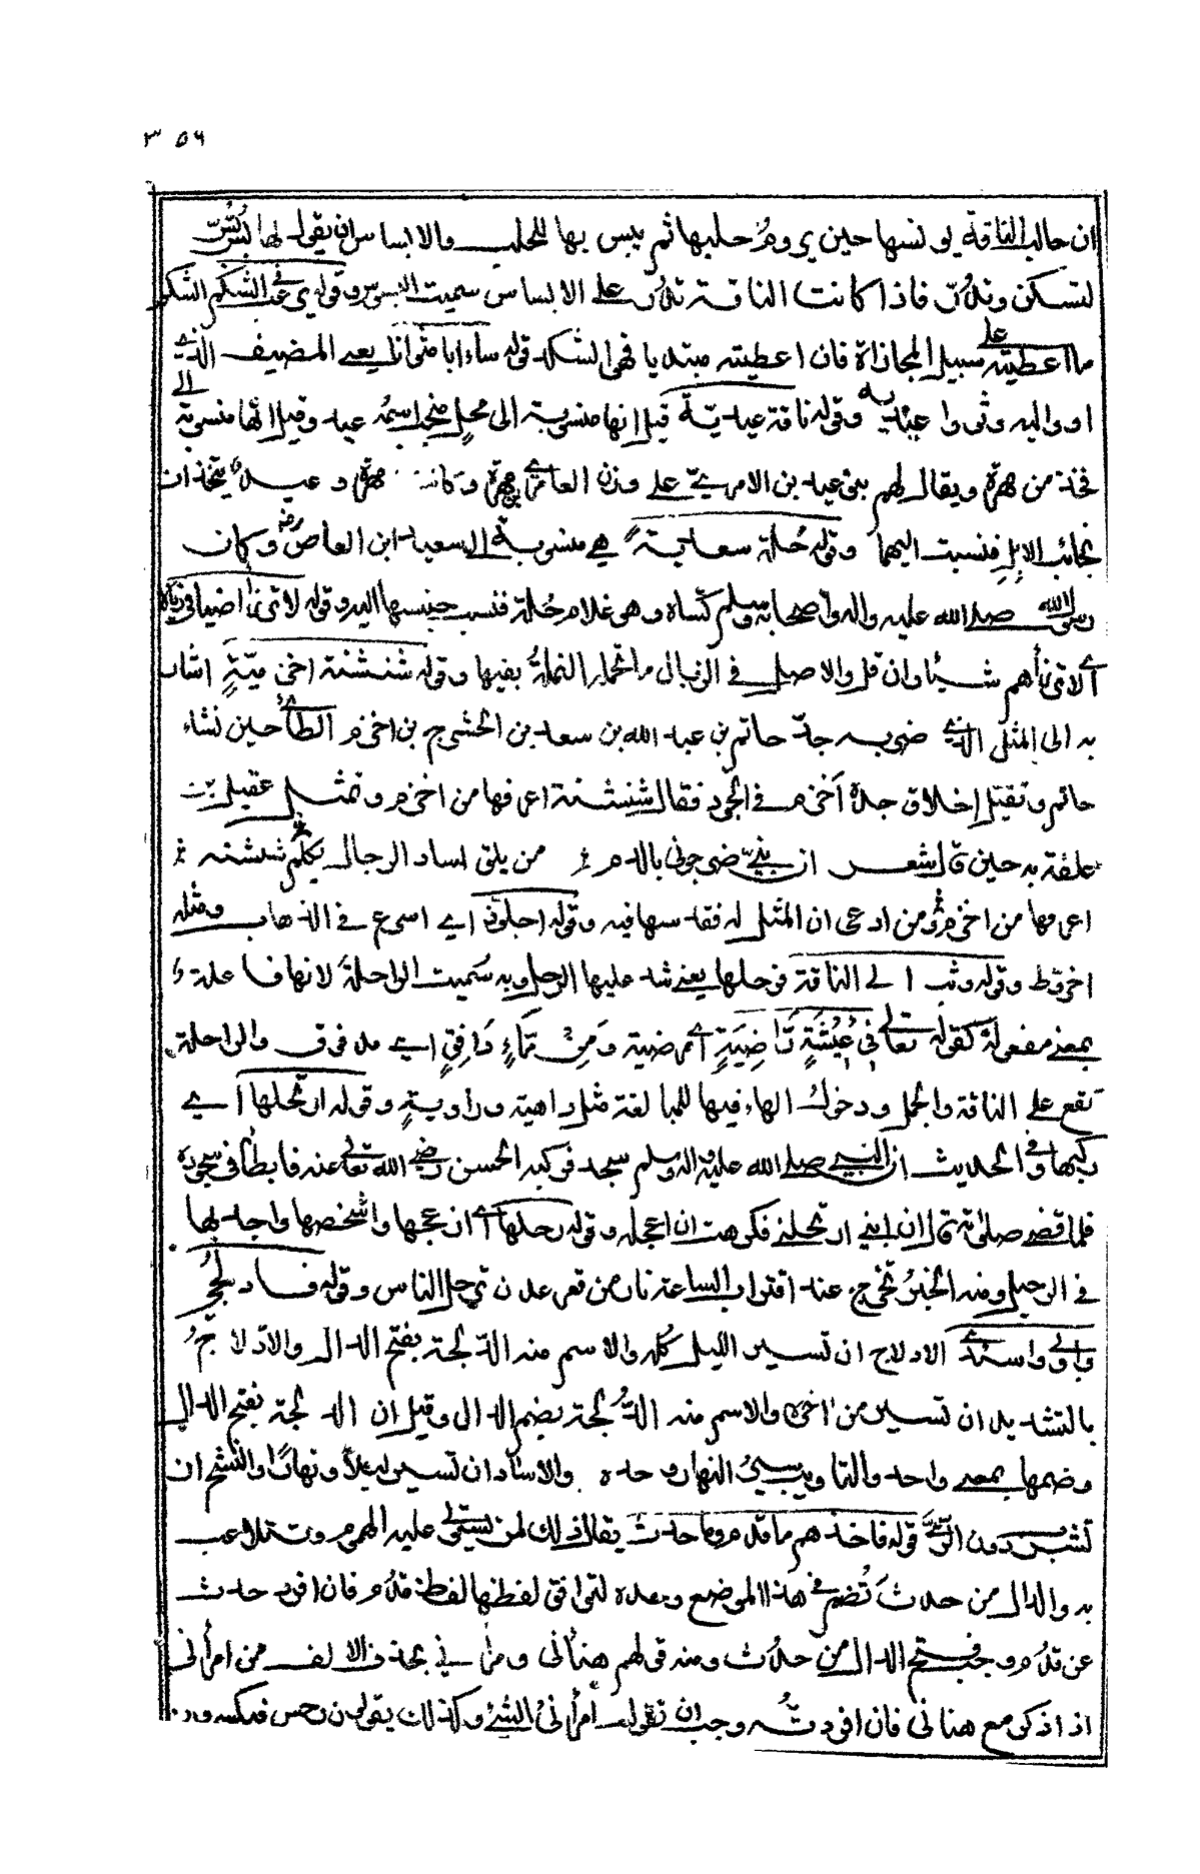 ٣٥٦
ان حالب الناقة يونسها حين يروم حلبها ثم يبس بها للحلب والابساس ان يقول لها بس بس
لتسكن وتدرّ فاذا كانت الناقة تدرّ على الابساس سميت البسوس وقوله يرغب الشكم الشكم
ما اعطيته على سبيل المجازاة فان اعطيته مبتديا فهو الشكد قوله ساء ابا مثوانا يعنى المضيف الذى
اووا اليه وثووا عنده وقوله ناقة عيدية قيل انها منسوبة الى فحل منجب اسمه عيد وقيل انها منسوبة الى
فخذ من مهرة ويقال لهم بنى عيد بن الامرىّ على وزن العامرى بن مهرة وكانت مهرة وعيد يتخذان
نجائب الابل فنسبت اليهما وقوله حُلّة سعيدية هى منسوبة الى سعيد ابن العاص رضه وكان
رسول الله صلى الله عليه واله واصحابه وسلم كساه وهو غلام حُلّة فنسب جنسها اليه وقوله لا ترزأ اضيافى زبالا
اى لا ترزأهم شيئا وان قل والاصل فى الزبال ما تحمله النملة بفيها وقوله شنشنة اخزمية اشار
به الى المثل الذى ضربه جدّ حاتم بن عبد الله بن سعد بن الحشرج بن اخزم الطائى حين نشاء
حاتم وتقيّل اخلاق جده اخزم فى الجود فقال شنشنة اعرفها من اخزم وتمثل عقيل بن
علفة به حين قال شعر ان بنىّ ضرجونى بالدم من يلق اساد الرجال يكلم شنشنة
اعرفها من اخزم ومن ادعى ان المثل له فقد سها فيه وقوله اجلوذ اى اسرع فى الذهاب ومثله
اخروط وقوله وثب الى الناقة فرحلها يعنى شد عليها الرحل وبه سميت الراحلة لانها فاعلة
بمعنى مفعولة كقوله تعالى فى عيشة راضية اى مرضية ومن ماء دافق اى مدفوق والراحلة
تقع على الناقة والجمل ودخول الهاء فيها للمبالغة مثل داهية وراوية وقوله ارتحلها اى
ركبها وفى الحديث ان النبى صلى الله عليه واله وسلم سجد فركبه الحسن رضى الله تعالى عنه فابطأ فى سجوده
فلما قضى صلوته قال ان ابنى ارتحلنى فكرهت ان اعجله وقوله رحلها اى ازعجها واشخصها واجد لها
فى الرحيل ومنه الخبر تخرج عند اقتراب الساعة نار من قعر عدن ترحل الناس وقوله فسادلجُ
واولى واستدى الادلاج ان تسير الليل كله والاسم منه الدلجة بفتح الدال والادّلاجُ
بالتشديد ان تسير من اخره والاسم منه الدُلجة بضم الدال وقيل ان الدلجة بفتح الدال
وضمها بمعنى واحد والتاويب سير النهار وحده والاسئاد ان تسير ليلا ونهارا والنشح ان
تشرب دون الرىّ قوله فاخذهم ما قدم وما حدث يقال ذلك لمن يستولى عليه الهم وتتلاعب
به والدال من حدث تضم فى هذا الموضع وحده لتوافق لفظها لفظة قدم فان افرد حدث
عن قدم وجب فتح الدال من حدث ومنه قولهم هنأنى ومرأنى بحذف الالف من امرأنى
اذا ذكر مع هنانى فان افردته وجب ان تقول امرأنى الشئ وكذلك يقولون رجس